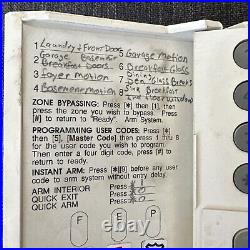 1 Laundry + Front Doors
5 Garage Motion
2 Garage Basement
Breakfast Doors
6 Breakfast Glass
3 Foyer Motion
7 Dining
Den Glass Breaks
4 Basement Motion
8 Sun Breakfast
ZONE BYPASSING: Press [✱] then [1], then
press zone(s) to be bypassed (1-8). Press
[#] to return to "Ready". Arm System.
PROGRAMMING USER CODES: Press [✱]
then [5], [Master Code] then press 1 thru 8
for user code you wish to program.
Then enter a four digit code, press [#]
to return to "Ready".
INSTANT ARM: Press [✱][9] before any user
code to arm system without entry delay.
ARM INTERIOR Press
QUICK EXIT Press
QUICK ARM Press
F E P